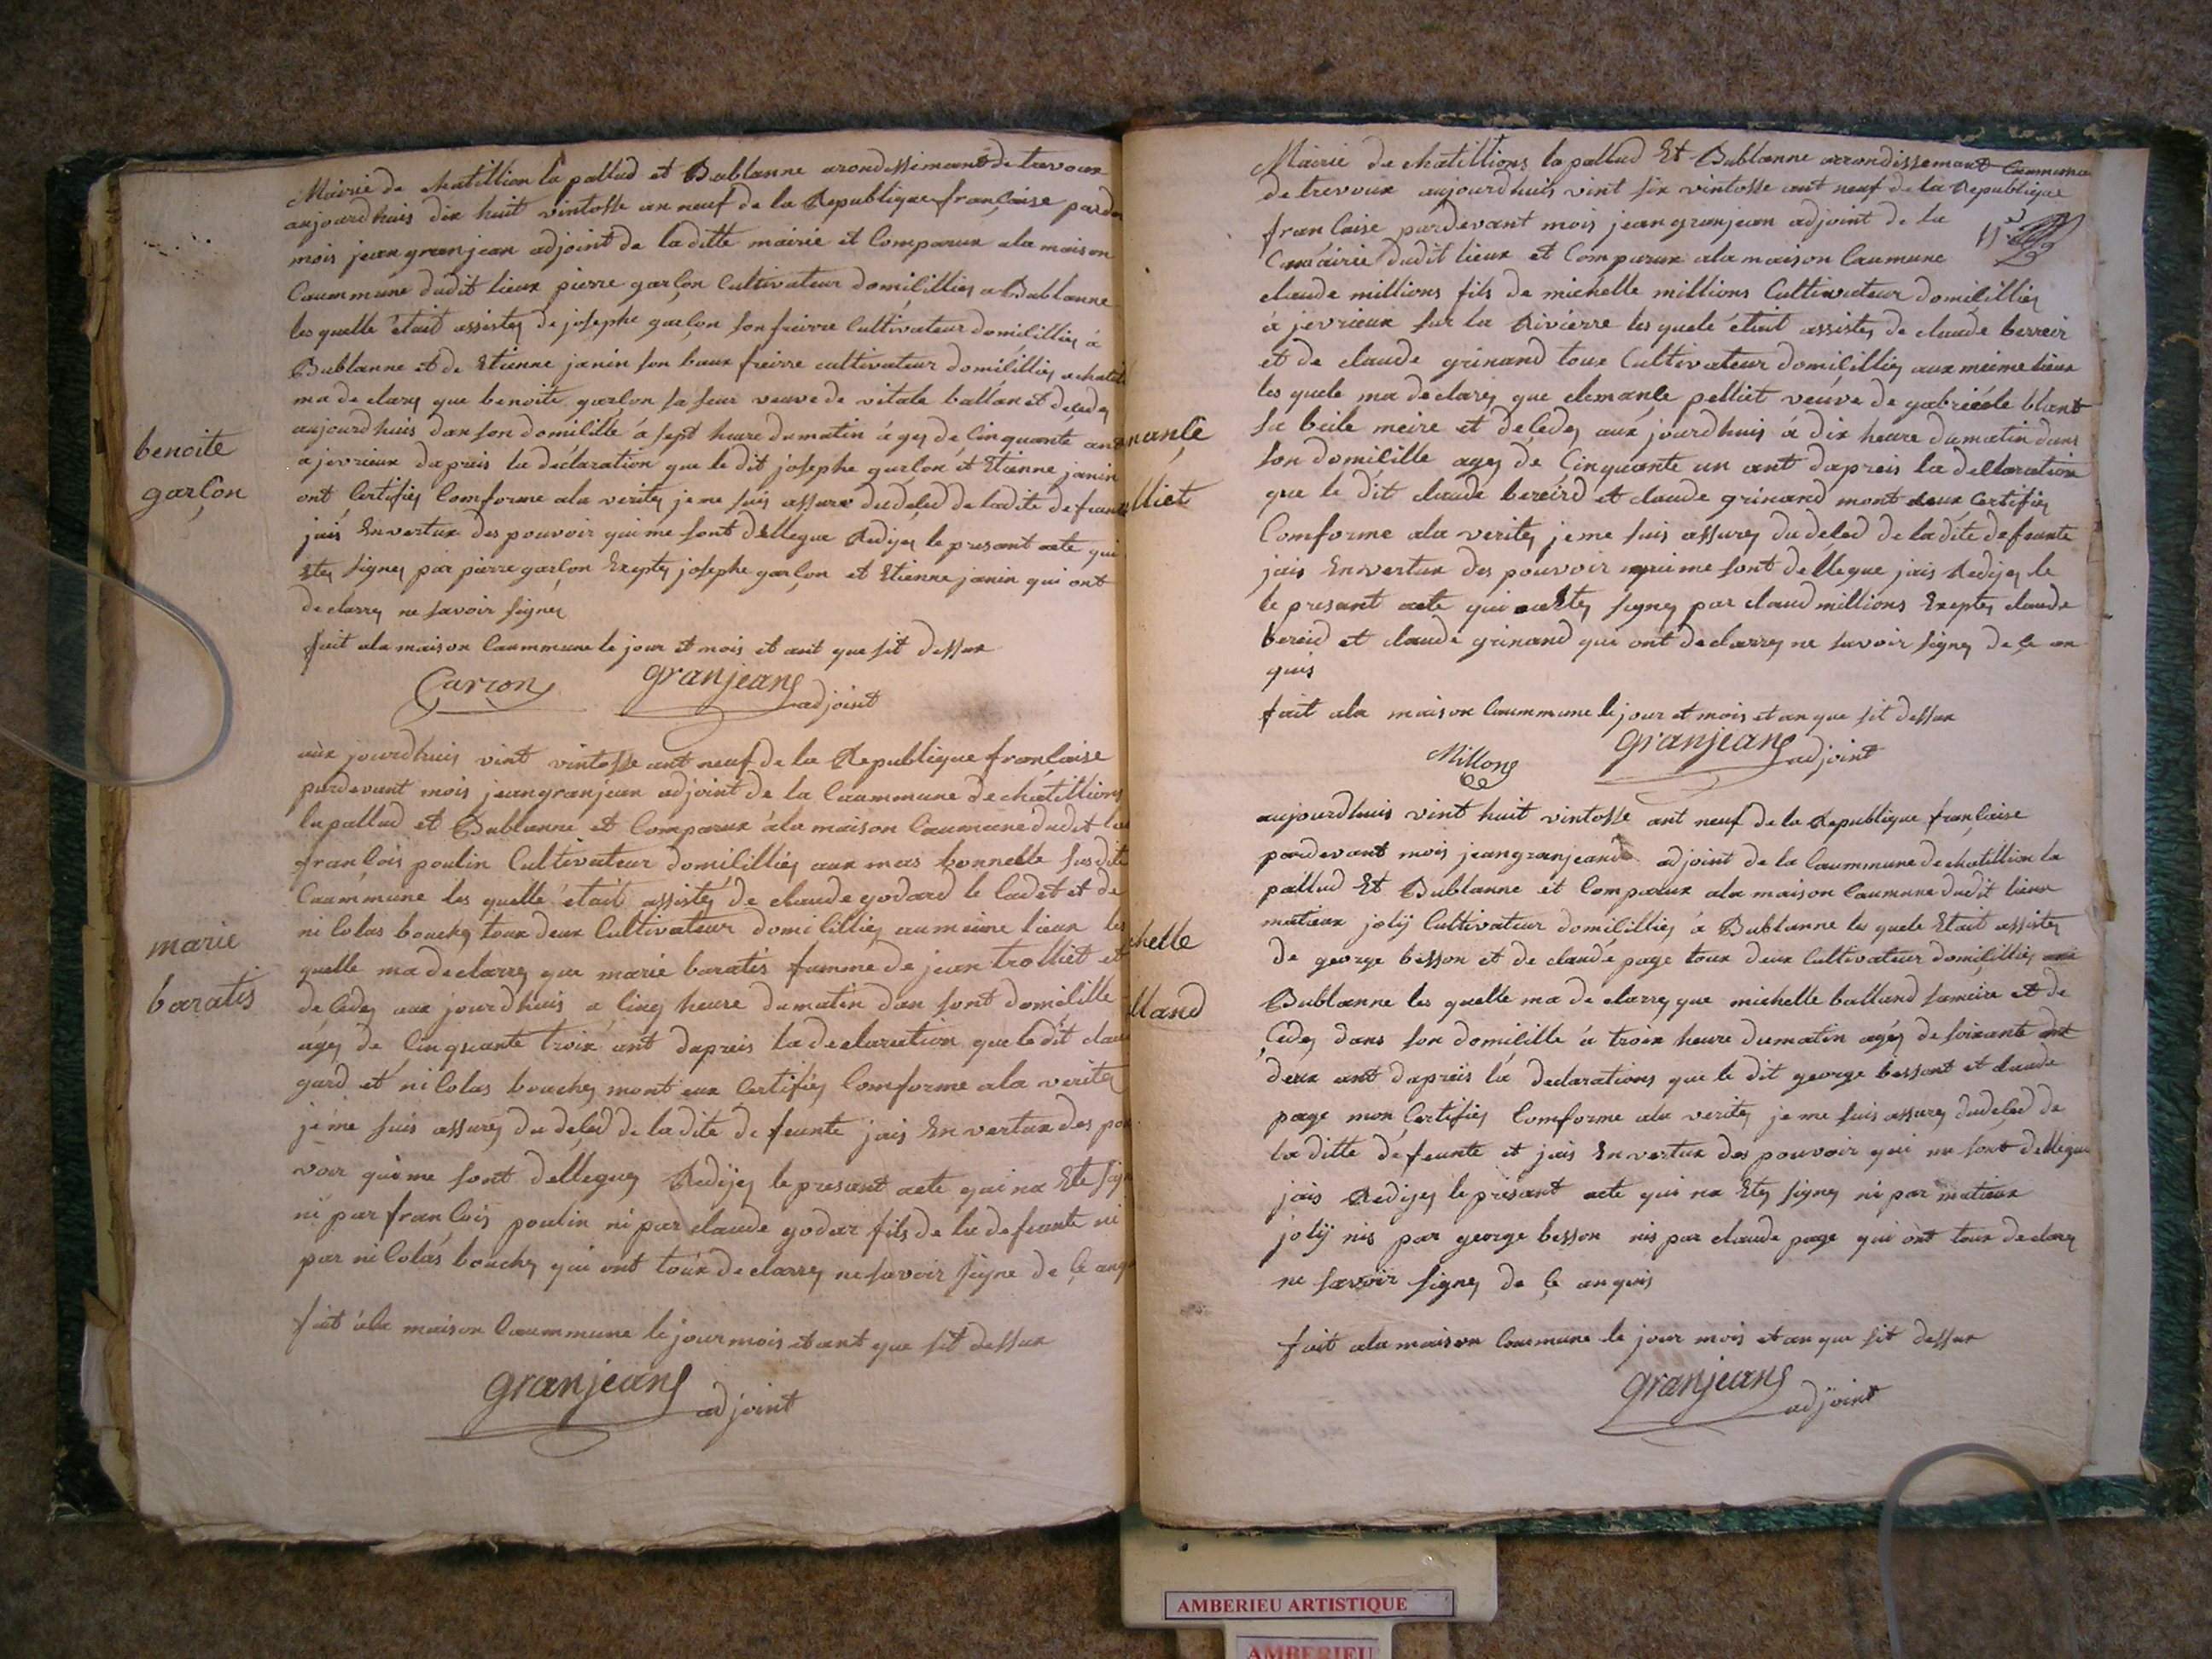 Mairie de chatillion la pallud et Bublanne arondissimant de trevoux
aujourdhuis dix huit vintosse an neuf de la Republique française parde
mois jean granjean adjoint de la ditte mairie et Comparux ala maison
Caummune dudit lieux pierre garçon Cultivateur domicilliey a Bublanne
les quelle était assistey de josephe garçon son freirre Cultivateur domicilliey à
Bublanne et de Etienne janin son baux freirre cultivateur domicilliey a chatil
ma de clarey que benoite garçon sa seur veuve de vitale ballan et decedey
aujourdhuis dan son domicille à sept heure du matin ágey de Cinquante an
benoite
garçon
a jevrieux dapreis la declaration que le dit josephe garçon et Etienne janin
ont Certifiey Comforme ala veritey je me suis assure du deced de ladite defeunte
jais Envertux des pouvoir qui me sont dellegue Redijey le presant acte qui
Etey signey par pierre garçon Exeptey josephe garçon et Etienne janin qui ont
declarrey ne savoir signey
fait ala maison Caummune le jour et mois et ant que sit dessux
Carron granjeans adjoint
aux jourdhuis vint vintosse ant neuf de la Republique française
pardevant mois jean granjean adjoint de la Caummune de chatillions
la pallud et Bublanne et Comparux àla maison Caumune dudit lieu
françois poulin Cultivateur domicilliey aux mas bonnette susdite
Caummune les quelle était assistéy de claude godard le Cadet et de
nicolas bouchey toux deux Cultivateur domicilliey au meime lieux les
marie
baratis
quelle ma declarrey que marie baratis famme de jean trolliet et
decedey aux jourdhuis a cinq heure dumatin dan sont domicille
ágey de Cinquante troix ant dapreis la declaration que le dit clau
gard et nicolas bouchey mont eux Certifiey Comforme ala veritey
je me suis assurey du deced de ladite defeunte jais Envertux des pou
voir qui me sont delleguey Redijey le presant acte qui na Ete sign
ni par françois poulin ni par claude godar fils de la defeunte ni
par nicolas bouchey qui ont toux declarrey ne savoir signe de çe anq
fait àla maison Caummune le jour mois et ant que sit dessux
granjeans adjoint
Mairie de chatillions la pallud Et Bublanne arrondissemant
de trevoux aujourdhuis vint six vintosse ant neuf de la Republique
française pardevant mois jean granjean adjoint de la
mairie dudit lieux et Comparux ala maison Caumune
claude millions fils de michelle millions Cultivateur domicilliey
à jevrieux sur la Rivierre les quele était assistey de claude berreir
et de claude grinand toux Cultivateur domicilliey aux meime lieux
les quele ma declarey que clemançe pelliet veuve de gabrieéle blant
nançe
lliet
sa beile meire et decedey aux jourdhuis à dix heure dumatin dans
son domicille agey de Cinquante un ant dapreis la declaration
que le dit claude bereird et claude grinand mont eux Certifiey
Comforme ala veritey je me suis assurey du deced de ladite defeunte
jais Envertux des pouvoir qui me sont dellegue jais Redijey le
le presant acte qui a Etey signey par claud millions Exeptey claude
bereid et claude grinand qui ont declarrey ne savoir signey de çe an
quis
fait ala maison Caummune le jour et mois et an que sit dessux
Millons granjeans adjoint
aujourdhuis vint huit vintosse ant neuf de la Republique française
pardevant mois jean granjeand adjoint de la Caummune de chatillion la
pallud Et Bublanne et Comparux ala maison Caumune dudit lieux
matieux jolij Cultivateur domicilliey à Bublanne les quele Etait assistey
de george besson et de claude page toux deux Cultivateur domicilliey
helle
lland
Bublanne les quelle ma declarrey que michelle balland sameire et de
Cedey dans son domicille à troix heure dumatin agéy de soixante
deux ant dapreis la declarations que le dit george bessont et claude
page mon Certifiey Comforme ala veritey je me suis assurey du deced de
la ditte defeunte et jais Envertux des pouvoir qui me sont dellegue
jais Redijey le présant acte qui na Etey signey ni par matieux
jolij nis par george besson nis par claude page qui ont toux declarey
ne savoir signey de çe anquis
fait ala maison Caumune le jour mois et an que sit dessux
granjeans adjoint
AMBERIEU ARTISTIQUE
AMBERIEU